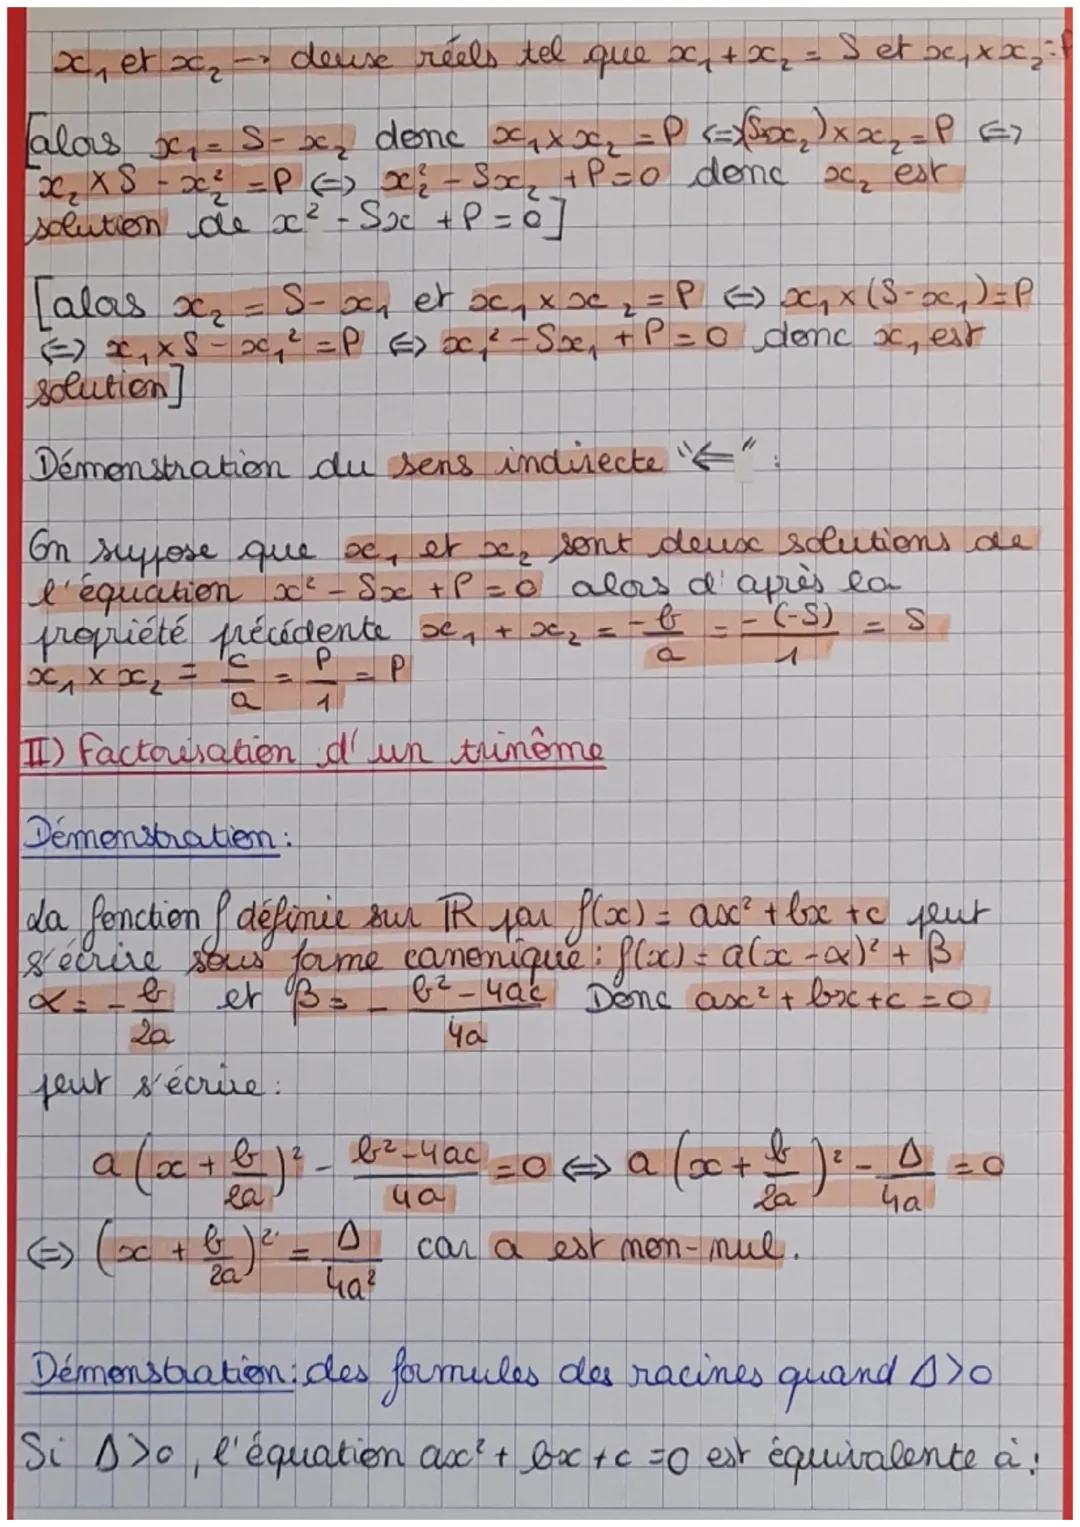 x₁ et x₂ → deux réels tel que x₁ + x₂ = S et x₁ × x₂ = P
[alors x₁ = S - x₂ donc x₁ × x₂ = P ⇔ (S-x₂) × x₂ = P ⇔
x₂ × S - x₂² = P ⇔ x₂² - Sx₂ + P = 0 donc x₂ est
solution de x² - Sx + P = 0]
[alors x₂ = S - x₁ et x₁ × x₂ = P ⇔ x₁ × (S-x₁) = P
⇔ x₁ × S - x₁² = P ⇔ x₁² - Sx₁ + P = 0 donc x₁ est
solution]
Démonstration du sens indirecte "⇐" :
On suppose que x₁ et x₂ sont deux solutions de
l'équation x² - Sx + P = 0 alors d'après la
propriété précédente x₁ + x₂ = -b/a = -(-S)/1 = S
x₁ × x₂ = c/a = P/1 = P
II) Factorisation d'un trinôme
Démonstration :
La fonction f définie sur ℝ par f(x) = ax² + bx + c peut
s'écrire sous forme canonique : f(x) = a(x - α)² + β
α = - b/2a et β = - b² - 4ac/4a Donc ax² + bx + c = 0
peut s'écrire :
a (x + b/2a)² - b² - 4ac/4a = 0 ⇔ a (x + b/2a)² - Δ/4a = 0
⇔ (x + b/2a)² = Δ/4a² car a est non-nul.
Démonstration : des formules des racines quand Δ>0
Si Δ>0, l'équation ax² + bx + c = 0 est équivalente à :